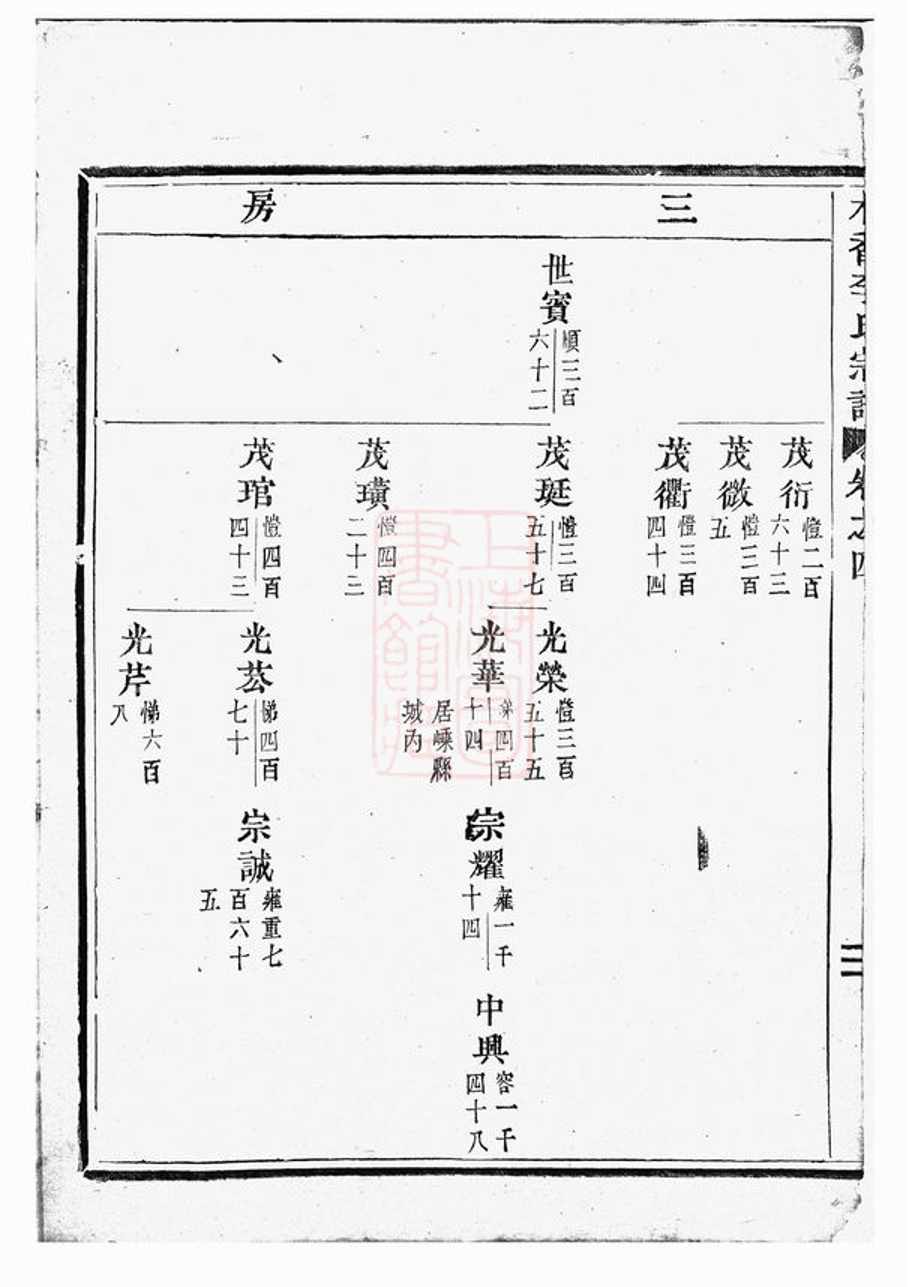 李氏宗譜
卷之四
二
三房
世賓 順三百六十二
茂衍 愷二百六十三
茂微 愷三百五
茂衢 愷三百四十四
茂珽 愷三百五十七
茂璜 愷四百二十三
茂琯 愷四百四十三
光榮 愷三百五十五
光華 悌四百十四
居嵊縣城內
光芸 悌四百七十
光芹 悌六百八
宗耀 雍一千十四
宗誠 雍重七百六十五
中興 容一千四十八
上海圖書館藏